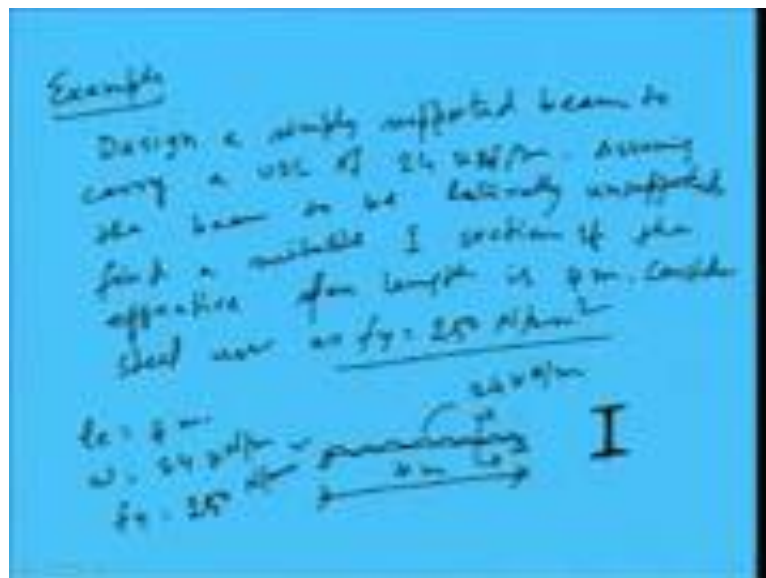 Example
Design a simply supported beam to
carry a UDL of 24 kN/m. Assuming
the beam to be laterally unsupported
find a suitable I section if the
effective span length is m. Consider
steel as fy = 250 N/mm²
24 kN/m
le = m
w = 24 kN/m
m
fy = 250 N/mm²
I